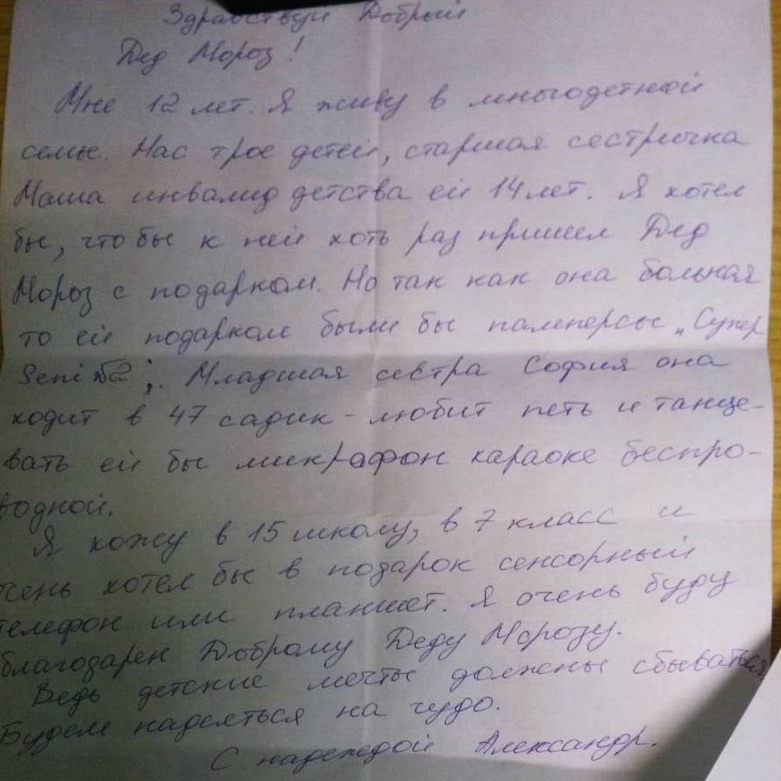 Здравствуй Добрый
Дед Мороз!
Мне 12 лет. Я живу в многодетной
семье. Нас трое детей, старшая сестричка
Маша инвалид детства ей 14 лет. Я хотел
бы, что бы к ней хоть раз пришел Дед
Мороз с подарком. Но так как она больная
то ей подарком были бы памперсы „Супер
Seni №2". Младшая сестра София она
ходит в 47 садик - любит петь и танце-
вать ей бы микрафон караоке беспро-
водной.
Я хожу в 15 школу, в 7 класс и
очень хотел бы в подарок сенсорный
телефон или планшет. Я очень буду
благодарен Доброму Деду Морозу.
Ведь детские мечты должны сбываться
Будем надеяться на чудо.
С надеждой Александр.